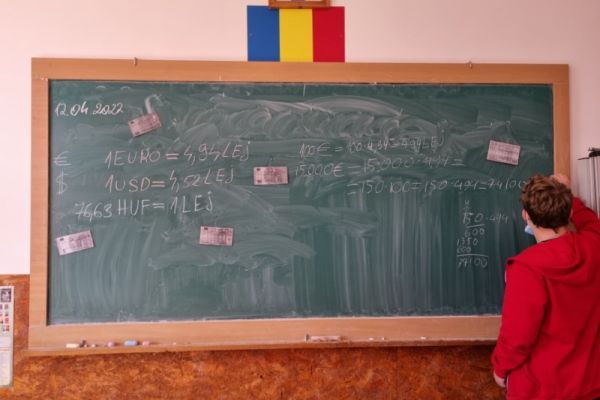 12.04.2022
€ 1EURO = 4,94 LEJ
$ 1USD = 4,52 LEJ
76,63 HUF = 1 LEJ
100€ = 100·4.94 = 494 LEJ
15.000€ = 15.000·4.94 =
= 150·100 = 150·494 = 74100
150·494
600
1350
600
74100